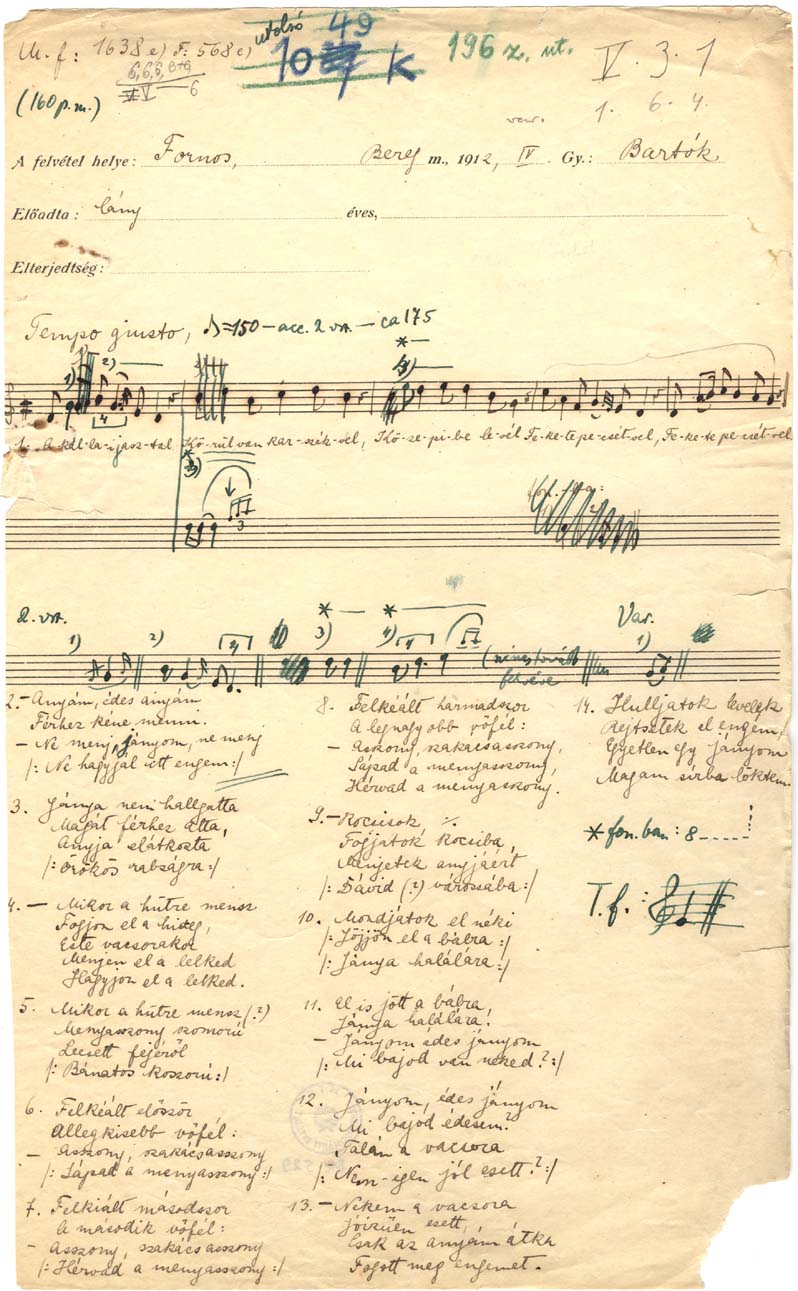 M. f: 1638 e) F: 568 c)
utolsó 49
10 K
196 z. ut.
V. 3. 1
6,6,6, 6+6
V — 6
(160 p.m.)
var. 1. 6. 4.
A felvétel helye: Fornos, Bereg m., 1912, IV. Gy.: Bartók
Előadta: lány éves,
Elterjedtség:
Tempo giusto, ♪=150 — acc. 2 vsz. — ca 175
1. A kál-la-i jasz-tal Kö-rül van kar-szék-vel, Kö-ze-pi-be le-vél Fe-ke-te pe-csét-vel, Fe-ke-te pe-csét-vel.
2. vsz.
1) 2) 3) 4)
(nincs tovább felvéve
Var.
1)
2.- Anyám, édes anyám
Férhez kéne menni.
- Ne menj, jányom, ne menj
|: Ne hagyjál itt engem :|
3. Jánya nem hallgatta
Magát férhez atta,
Anyja elátkozta
|: Örökös rabságra :|
4. — Mikor a hütre mensz
Fogjon el a hideg,
Este vacsorakor
Menjen el a lelked
Hagyjon el a lelked.
5. Mikor a hütre mensz (?)
Menyasszony szomorú
Leesett fejéről
|: Bánatos koszorú :|
6. Felkiált először
Allegkisebb vőfél:
- Asszony, szakácsasszony
|: Sápad a menyasszony :|
7. Felkiált másodszor
A második vőfél:
- Asszony, szakácsasszony
|: Hérvad a menyasszony :|
8. Felkiált harmadszor
A legnagyobb vőfél:
- Asszony, szakácsasszony,
Sápad a menyasszony,
Hérvad a menyasszony.
9.- Kocsisok ./.
Fogjatok kocsiba,
Menjetek anyjáért
|: Dávid (?) városába :|
10. Mondjátok el néki
|: Jöjjön el a bábra :|
|: Jánya halálára :|
11. El is jött a bábra,
Jánya halálára.
- Jányom édes jányom
|: Mi bajod van neked? :|
12. Jányom, édes jányom
Mi bajod édesem?
Talán a vacsora
|: Nem-igen jól esett? :|
13.- Nekem a vacsora
Jóizűen esett,
Csak az anyám átka
Fogott meg engemet.
14. Hulljatok levelek
Rejtsetek el engem,
Egyetlen egy jányom
Magam sírba löktem.
* fon. ban: 8
T. f.: